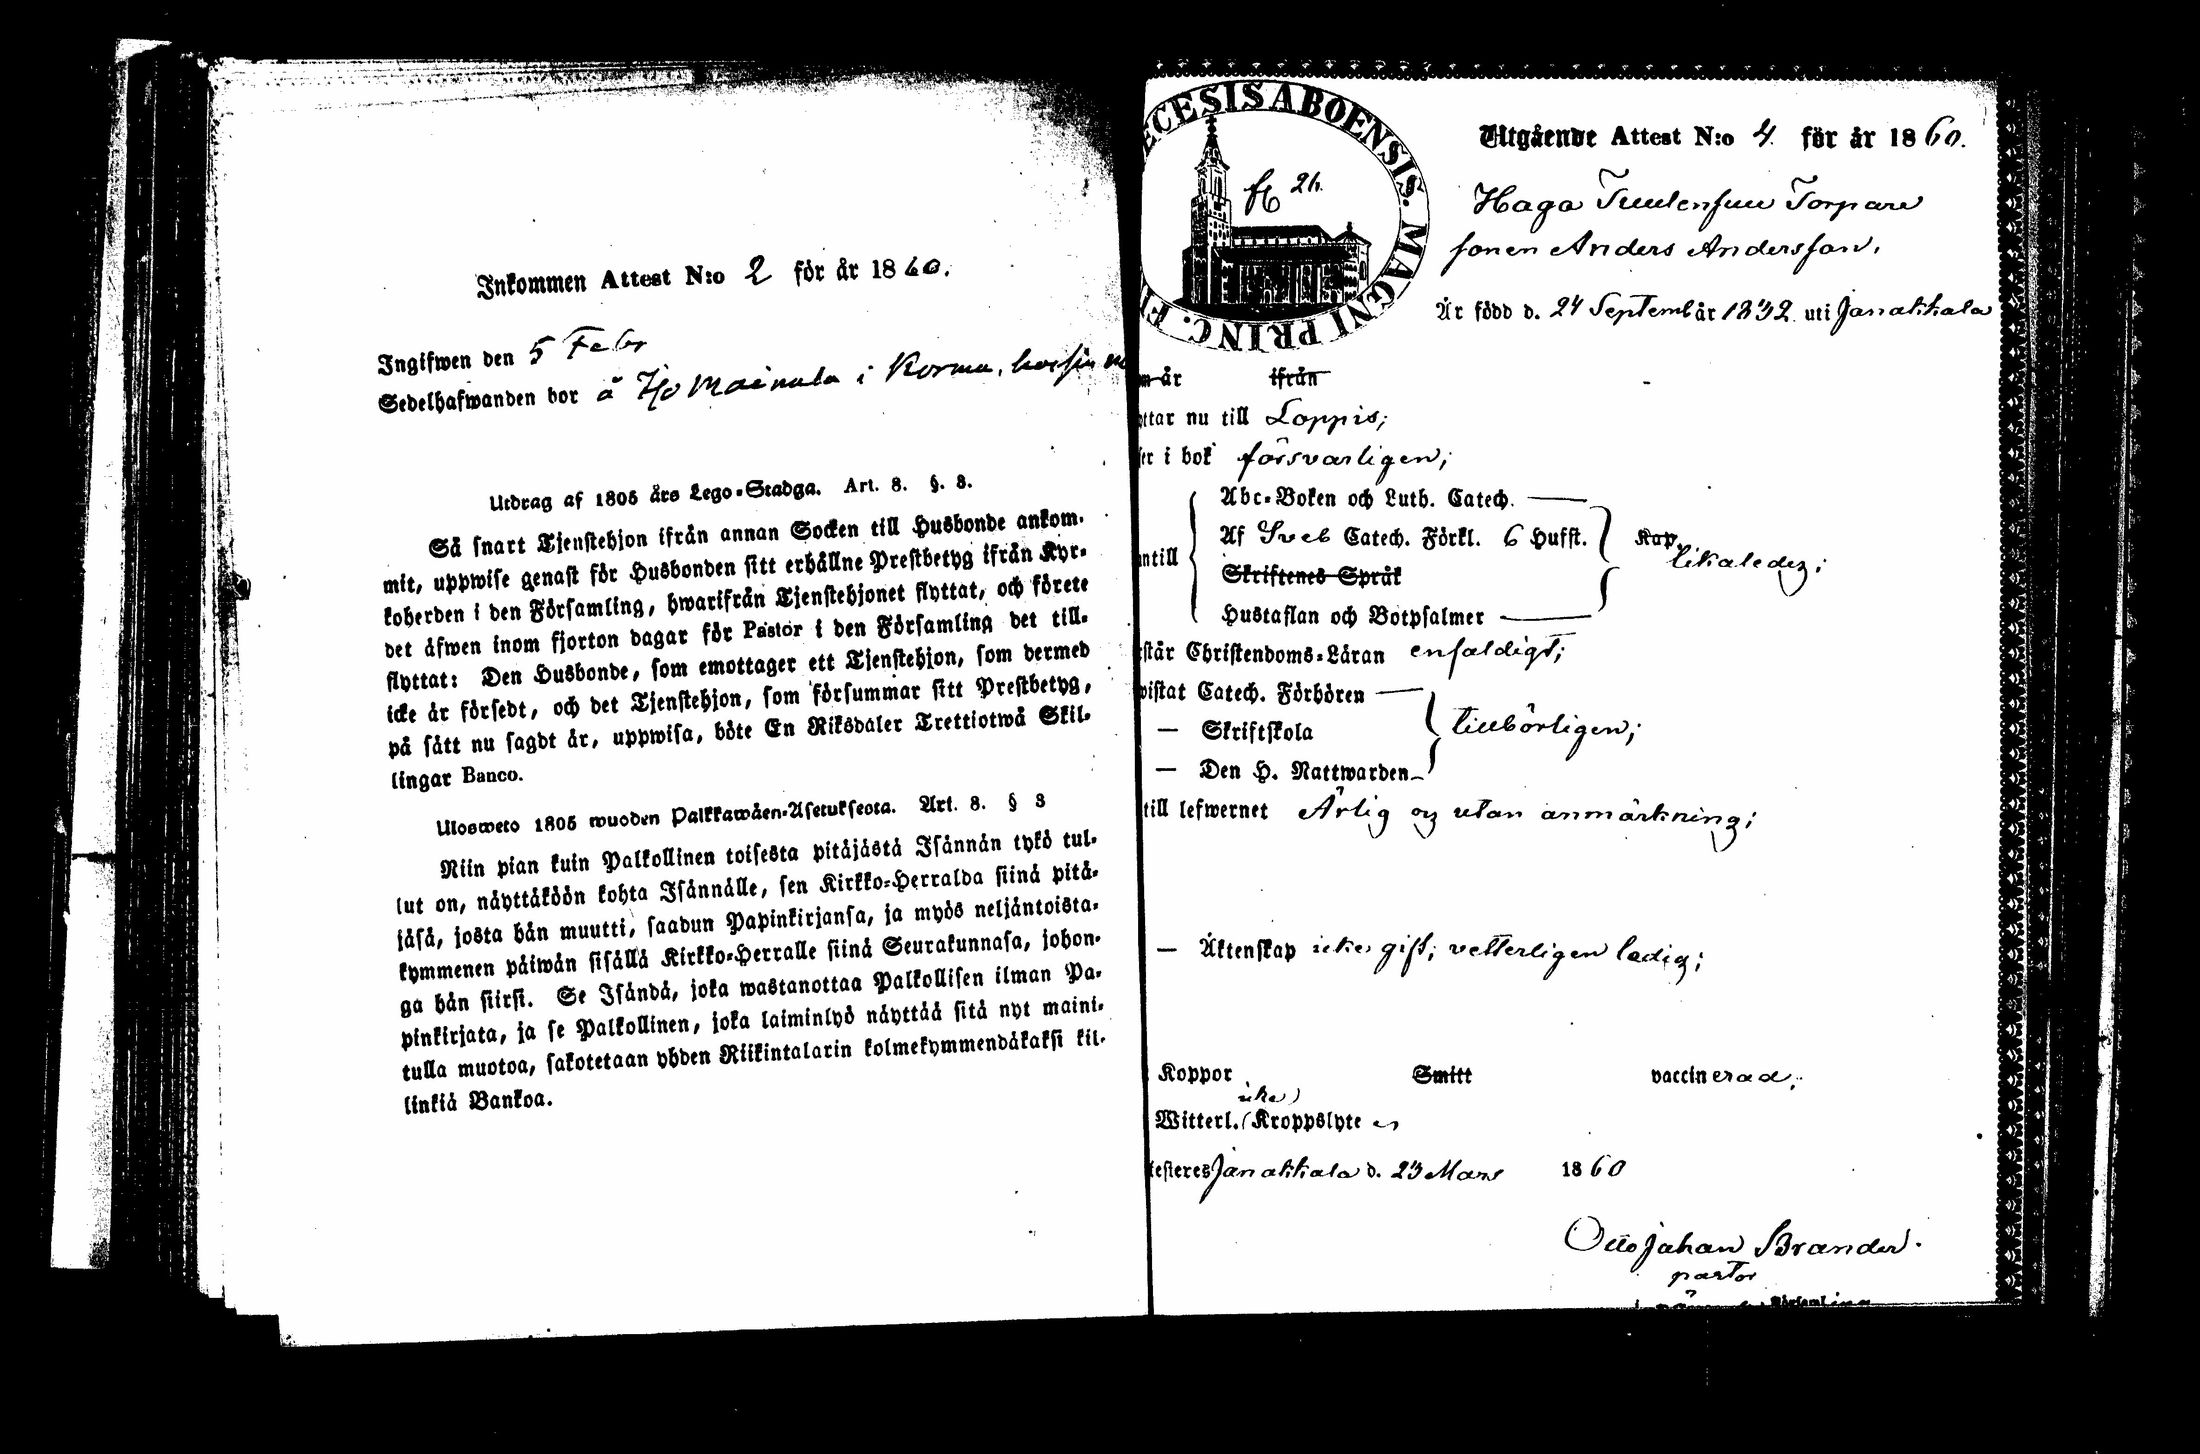 Inkommen Attest N:o 2 för år 1860.
Ingifwen den 5 Febr
Sedelhafwanden bor å Mainala i Kormu,
Utdrag af 1805 års Lego-Stadga. Art. 8. §. 3.
Så snart Tjenstehjon ifrån annan Socken till Husbonde ankom-
mit, uppwise genast för Husbonden sitt erhållne Prestbetyg ifrån Kyr-
koherden i den Församling, hwarifrån Tjenstehjonet flyttat, och förete
det äfwen inom fjorton dagar för Pastor i den Församling det till-
flyttat: Den Husbonde, som emottager ett Tjenstehjon, som dermed
icke är försedt, och det Tjenstehjon, som försummar sitt Prestbetyg,
på sätt nu sagdt är, uppwisa, böte En Riksdaler Trettiotwå Skil-
lingar Banco.
Ulosweto 1805 wuoden Palkkawäen-Asetuksesta. Art. 8. § 3
Niin pian kuin Palkollinen toisesta pitäjästä Isännän tykö tul-
lut on, näyttäköön kohta Isännälle, sen Kirkko-Herralda siinä pitä-
jäsä, josta hän muutti, saadun Papinkirjansa, ja myös neljäntoista-
kymmenen päiwän sisällä Kirkko-Herralle siinä Seurakunnasa, johon-
ga hän siirsi. Se Isändä, joka wastanottaa Palkollisen ilman Pa-
pinkirjata, ja se Palkollinen, joka laiminlyö näyttää sitä nyt maini-
tulla muotoa, sakotetaan yhden Riikintalarin kolmekymmendäkaksi kil-
linkiä Bankoa.
ECESIS ABOENSIS. MAGNI PRINC. FI
26.
Utgående Attest N:o 4 för år 1860.
Haga Tuulensuu Torpare
sonen Anders Andersson,
Är född d. 24 Septemb år 1832 uti Janakkala
år ifrån
ttar nu till Loppis;
er i bok försvarligen;
Abc-Boken och Luth. Catech.
Af Sveb Catech. Förkl. 6 Hufst. Kap.
likaledes;
ntill
Skriftenes Språk
Hustaflan och Botpsalmer
står Christendoms-Läran enfaldigt;
wistat Catech. Förhören
— Skriftskola tillbörligen;
— Den H. Nattwarden
till lefwernet Ärlig og utan anmärkning;
— Äktenskap icke gift; vetterligen ledig;
Koppor Smitt vaccinerad;
icke
Witterl. Kroppslyte
testeres Janakkala d. 23 Mars 1860
Otto Johan Brander.
pastor